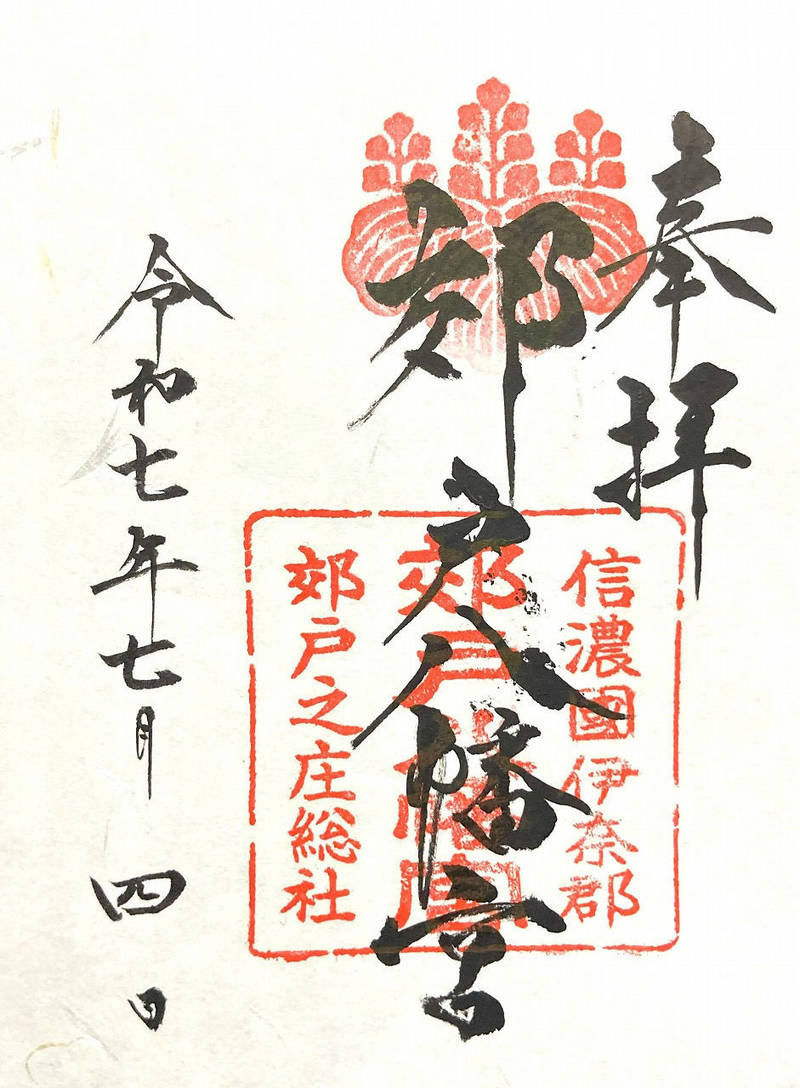 奉拝
郊戸八幡宮
信濃國伊奈郡
郊戸八幡宮
郊戸之庄総社
令和七年七月四日